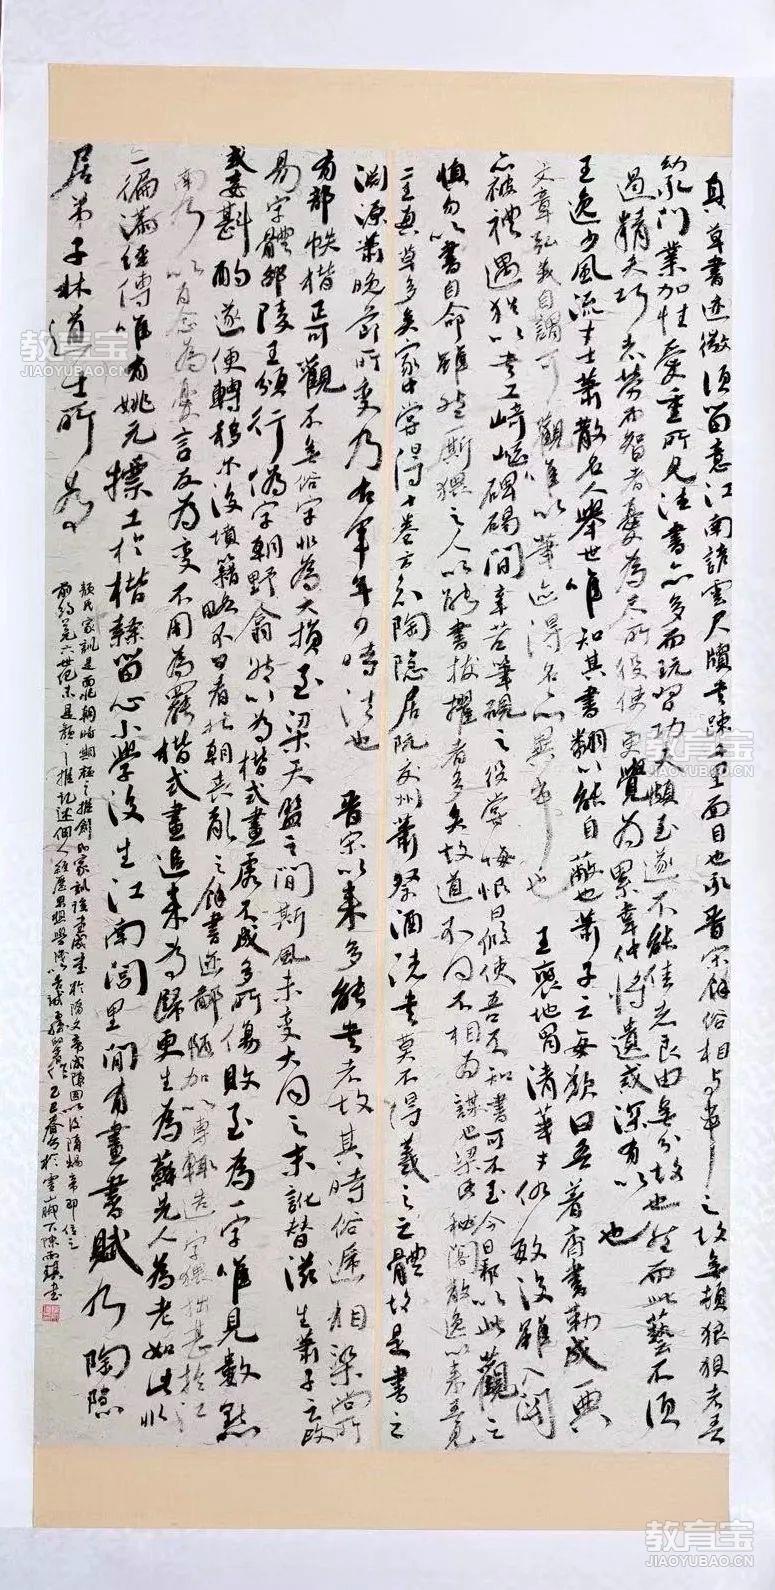 真草書迹微須留意江南諺雲尺牘書疎千里面目也承晉宋餘俗相与事之故無頓狼狽者吾
幼承門業加性愛重所見法書亦多而玩習功夫頗至遂不能佳者良由無分故也然而此藝不須
過精夫巧者勞而智者憂為人所役使更覺為累韋仲將遺戒深有以也
王逸少風流才士蕭散名人舉世唯知其書翻以能自蔽也蕭子云每歎曰吾著齊書勒成一典
文章弘義自謂可觀唯以筆迹得名亦異事也 王褒地胄清華才優敏後雖入関
亦被禮遇猶以書工崎嶇碑碣間辛苦筆硯之役嘗悔恨曰假使吾不知書可不至今日邪以此觀之
慎勿以書自命雖然厮猥之人以能書拔擢者多矣故道不同不相為謀也梁氏秘閣散逸以來吾見
二王真草多矣家中嘗得十卷方知陶隱居阮交州蕭祭酒諸書莫不得羲之之體故是書之
淵源蕭晚節所變乃右軍年少時法也 晉宋以來多能書者故其時俗遞相染尚所
有部帙楷正可觀不無俗字非為大損至梁天監之間斯風未變大同之末訛替滋生蕭子云改
易字體邵陵王頗行偽字朝野翕然以為楷式畫虎不成多所傷敗至為一字唯見數點
或妄斟酌遂便轉移爾後墳籍略不可看北朝喪亂之餘書迹鄙陋加以專輒造字猥拙甚於江
南乃以百念為憂言反為變不用為罷楷式畫追來為歸更生為蘇先人為老如此非
一徧滿經傳唯有姚元標工於楷隸留心小學後生江南閭里間有畫書賦乃陶隱
居弟子林道士所為
顏氏家訓是南北朝時期顏之推創的家訓該書成書於隋文帝滅陳國以後隋煬帝即位之
前約公元六世紀末是顏之推記述個人經歷思想學識以告誡子孫的 乙巳春月於雪山廟下陳雨琪書
教育宝
JIAOYUBAO.CN
教育宝
JIAOYUBAO.CN
教育宝
JIAOYUBAO.CN